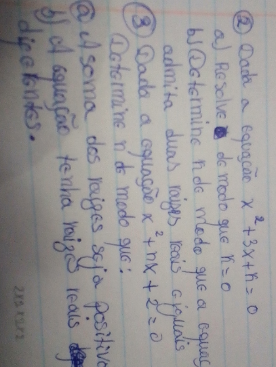 ② Dada a equação x²+3x+n=0
a) Resolve de modo que n=0
b) Determine n de modo que a equaç
admita duas raízes reais e iguais
③ Dada a equação x²+nx+2=0
Determine n de modo que:
ⓐ A soma das raízes seja positiva
b) A equação tenha raízes reais
diferentes.